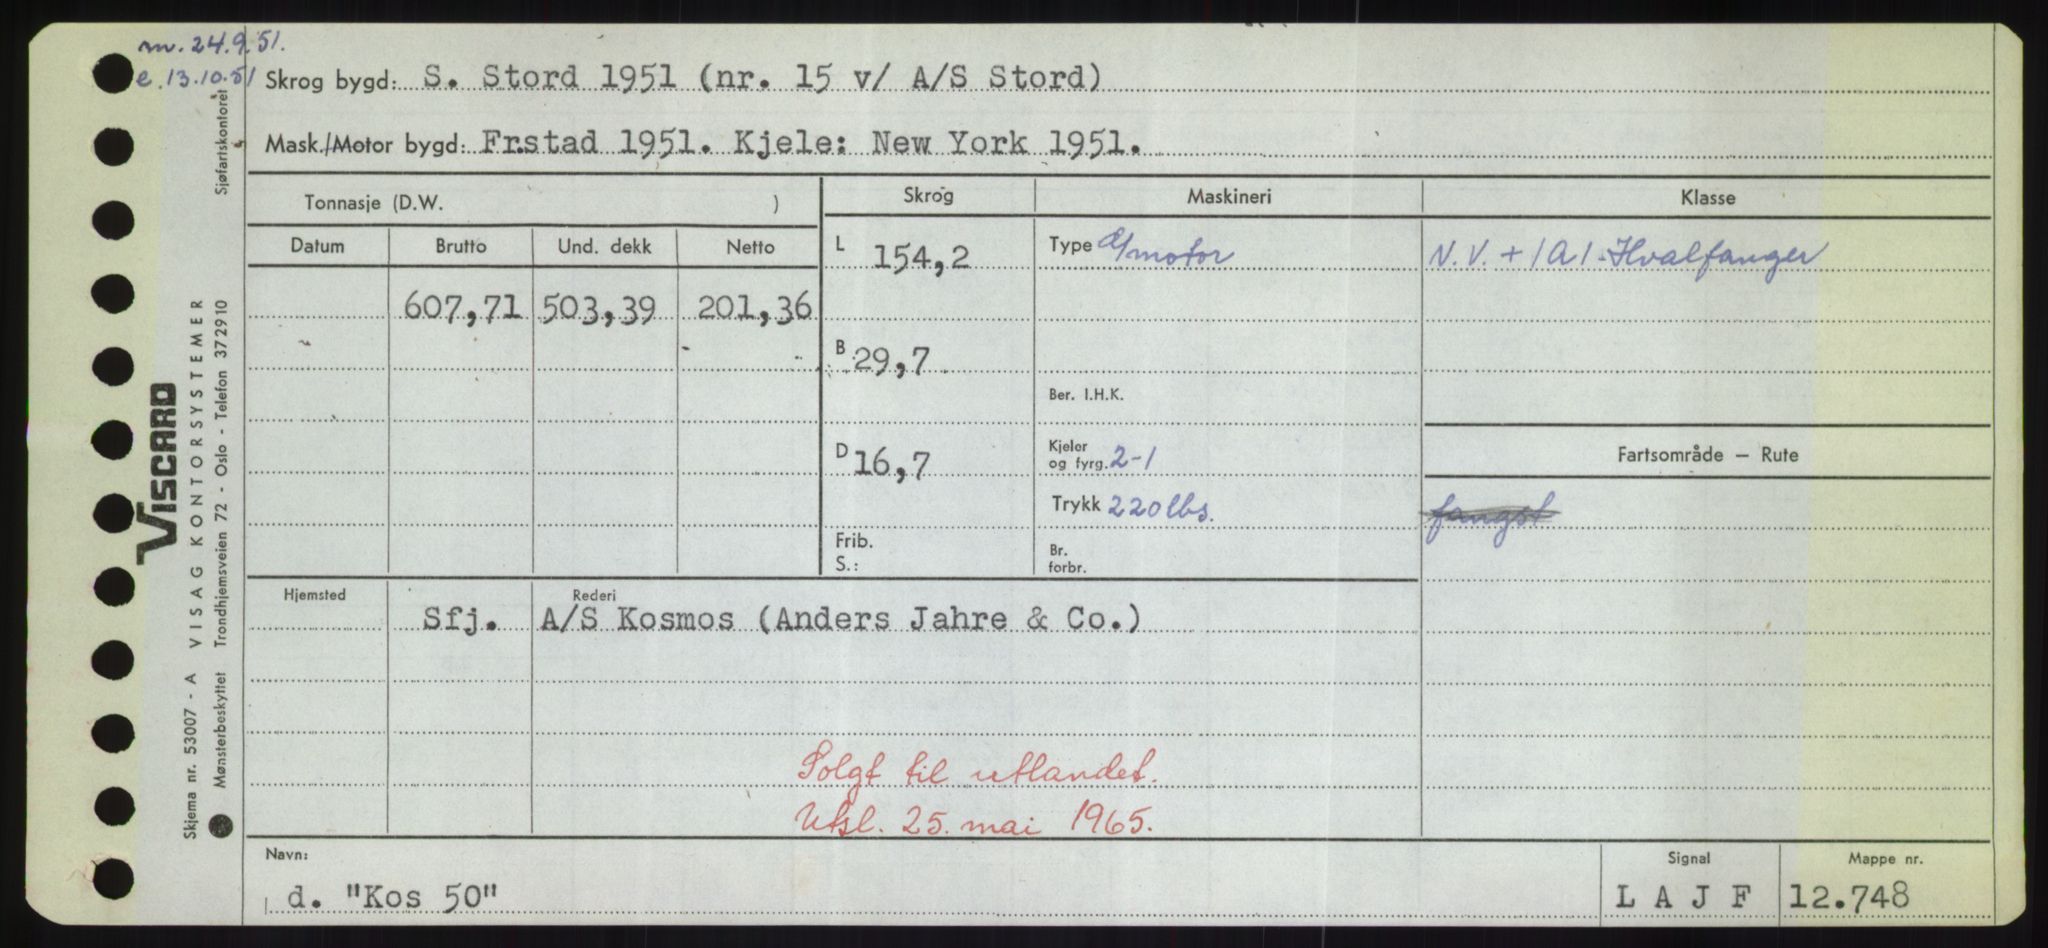 m. 24.9.51.
e. 13.10.51
Skrog bygd: S. Stord 1951 (nr. 15 v/ A/S Stord)
Mask./Motor bygd: Frstad 1951. Kjele: New York 1951.
Tonnasje (D.W. )
Skrog
Maskineri
Klasse
Datum Brutto Und. dekk Netto
607,71 503,39 201,36
L 154,2
B 29,7
D 16,7
Frib.
S.:
Type motor
Ber. I.H.K.
Kjeler
og fyrg. 2-1
Trykk 220 lbs.
Br.
forbr.
N.V. + 1A1-Hvalfanger
Fartsområde — Rute
fangst
Hjemsted
Rederi
Sfj. A/S Kosmos (Anders Jahre & Co.)
Solgt til utlandet.
Utsl. 25. mai 1965.
Navn:
d. "Kos 50"
Signal
L A J F
Mappe nr.
12.748
VISCARD
Skjema nr. 53007 - A VISAG KONTORSYSTEMER
Mønsterbeskyttet Trondhjemsveien 72 - Oslo - Telefon 372910
Sjøfartskontoret